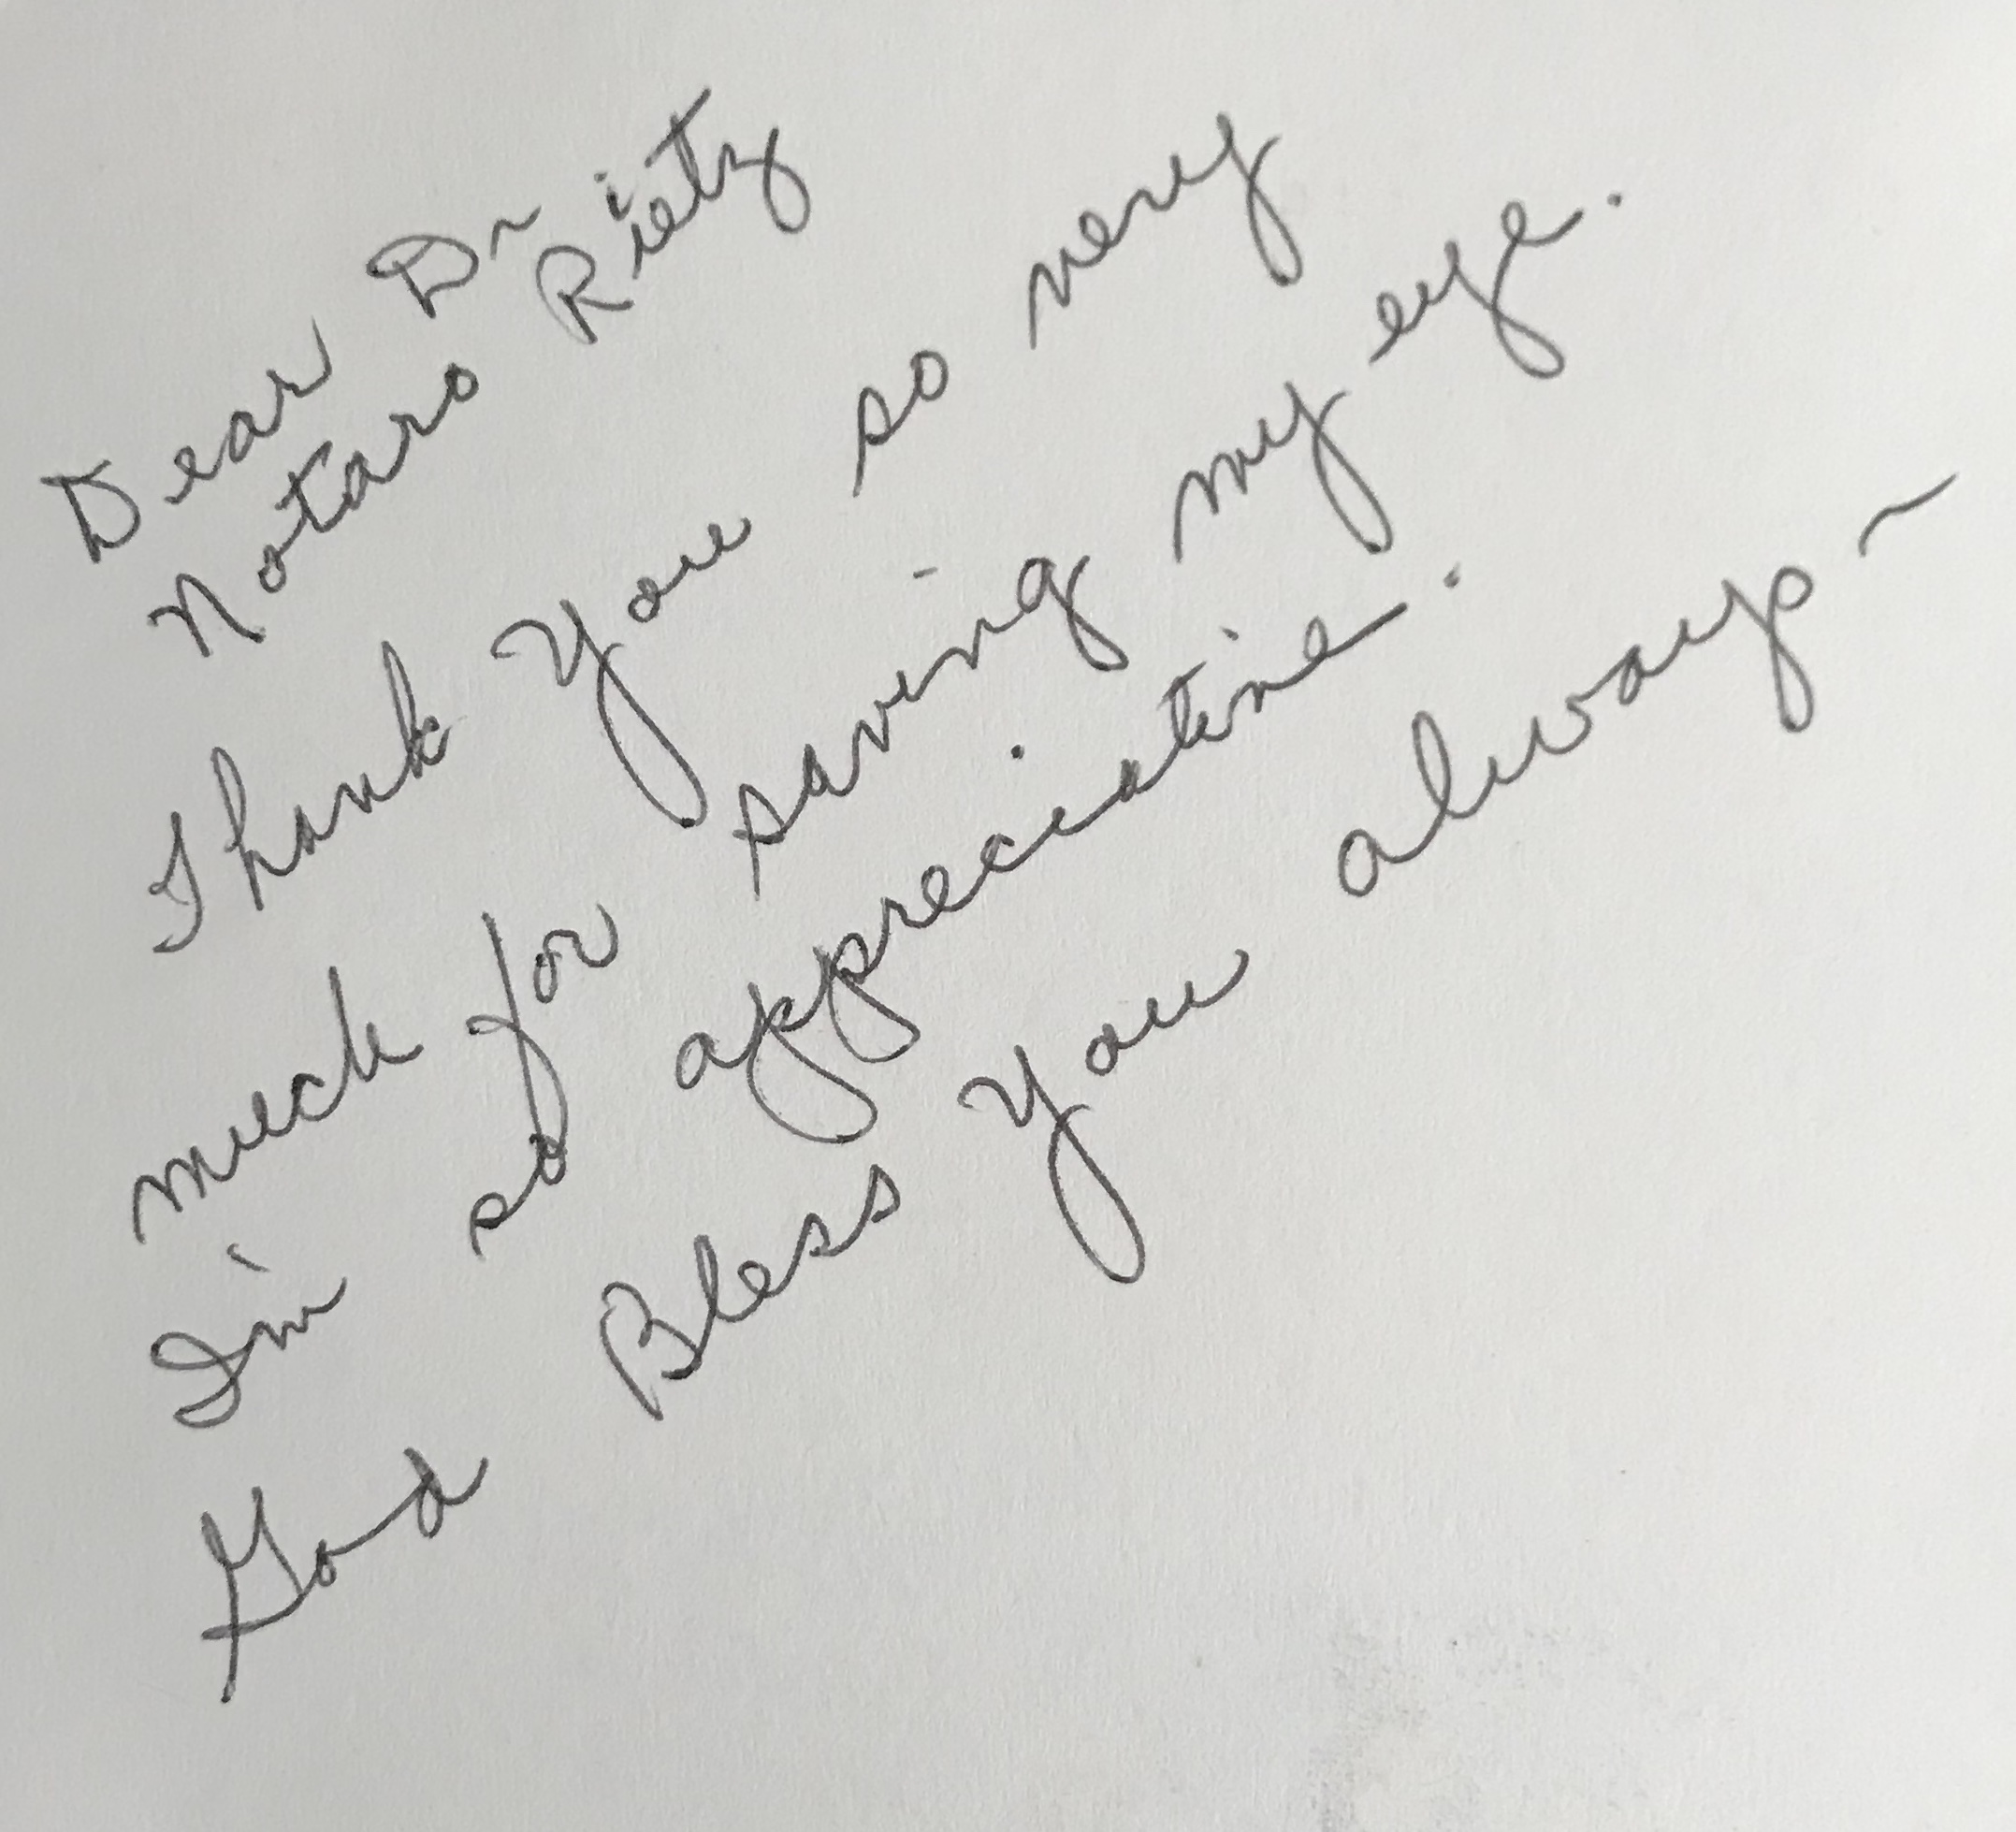 Dear Dr
Notaro Rietz
Thank You so very
much for saving my eye.
I'm so appreciative.
God Bless You always ~